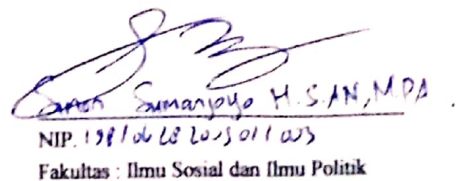 Simon Sumanjoyo H. S.AN, M.PA
NIP. 19810628 200501 1 003
Fakultas : Ilmu Sosial dan Ilmu Politik